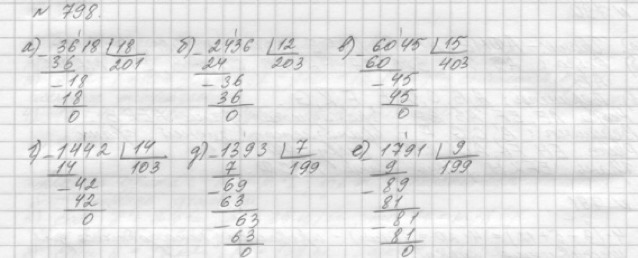 № 798.
а) 3618 | 18 б) 2436 | 12 в) 6045 | 15
36 201 24 203 60 403
- 18 - 36 - 45
18 36 45
0 0 0
г) - 1442 | 14 д) - 1393 | 7 е) - 1791 | 9
14 103 7 199 9 199
- 42 - 69 - 89
42 63 81
0 - 63 - 81
63 81
0 0